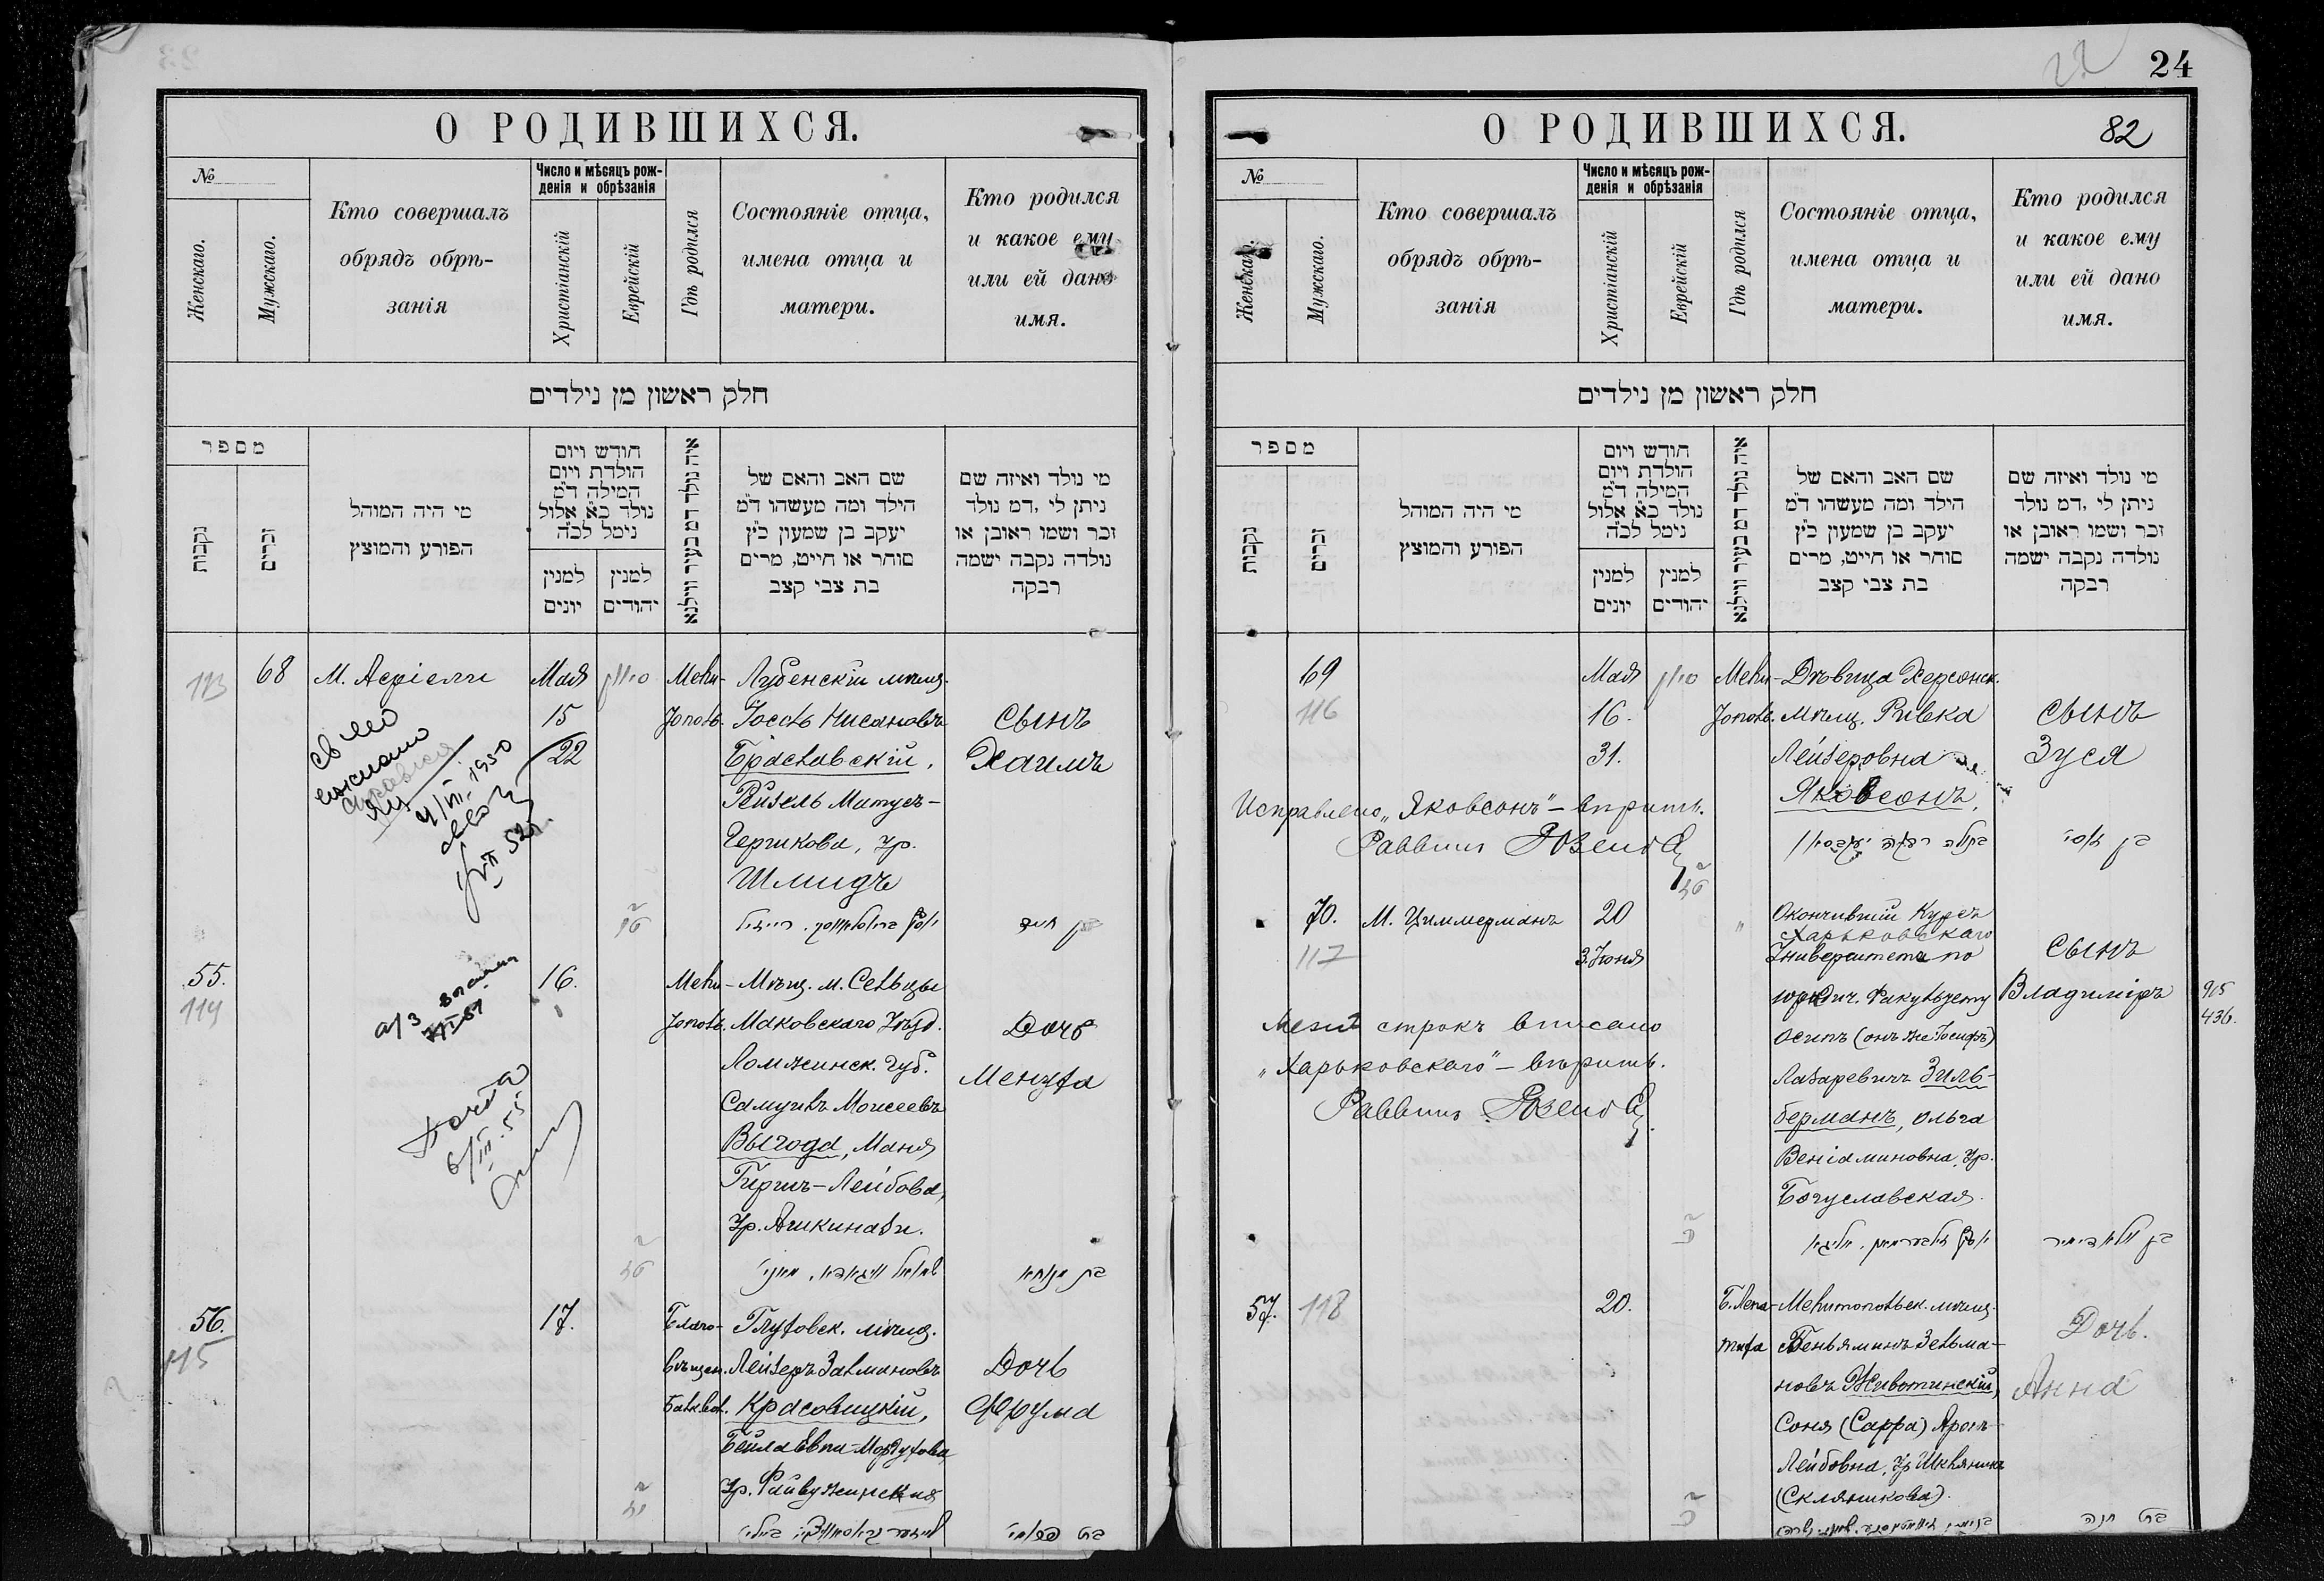 О РОДИВШИХСЯ.
№
Женскаго.
Мужскаго.
Кто совершалъ
обрядъ обрѣ-
занія
Число и мѣсяцъ рож-
денія и обрѣзанія
Христіанскій
Еврейскій
Гдѣ родился
Состояніе отца,
имена отца и
матери.
Кто родился
и какое ему
или ей дано
имя.
חלק ראשון מן נילדים
מספר
נקבות
זכרים
מי היה המוהל
הפורע והמוצץ
חודש ויום
הולדת ויום
המילה ד״מ
נולד כ״א אלול
נימל לכ״ה
למנין
יונים
למנין
יהודים
איה נולד דמ בעיר ווילנא
שם האב והאם של
הילד ומה מעשהו ד״מ
יעקב בן שמעון כ״ץ
סוחר או חייט, מרים
בת צבי קצב
מי נולד ואיזה שם
ניתן לי, דמ נולד
זכר ושמו ראובן או
נולדה נקבה ישמה
רבקה
113
68
М. Асріелли
Мая
15
22
סיון
Мели-
тополь.
Лубенскій мѣщ.
Іоссь Нисановъ
Браславскій,
Рейзель Митусъ-
Герчикова, ур.
Шмидъ
Сынъ
Хаимъ
55.
114
16.
Мели-
тополь.
Мѣщ. м. Сельцы
Маковскаго Уѣзд.
Ломжинск. губ.
Самуилъ Моисеевъ
Выгода, Маня
Гиршъ-Лейбова,
Ур. Ашкинази.
Дочь
Менуха
56.
115
17.
Благо-
вѣщен.
Глуховск. мѣщ.
Лейзеръ Залмановъ
Красовицкій,
Бейла Евна-Мордухова
Дочь
Фрума
24
О РОДИВШИХСЯ.
82
№
Женскаго.
Мужскаго.
Кто совершалъ
обрядъ обрѣ-
занія
Число и мѣсяцъ рож-
денія и обрѣзанія
Христіанскій
Еврейскій
Гдѣ родился
Состояніе отца,
имена отца и
матери.
Кто родился
и какое ему
или ей дано
имя.
חלק ראשון מן נילדים
מספר
נקבות
זכרים
מי היה המוהל
הפורע והמוצץ
חודש ויום
הולדת ויום
המילה ד״מ
נולד כ״א אלול
נימל לכ״ה
למנין
יונים
למנין
יהודים
איה נולד דמ בעיר ווילנא
שם האב והאם של
הילד ומה מעשהו ד״מ
יעקב בן שמעון כ״ץ
סוחר או חייט, מרים
בת צבי קצב
מי נולד ואיזה שם
ניתן לי, דמ נולד
זכר ושמו ראובן או
נולדה נקבה ישמה
רבקה
69
116
Мая
16.
31.
סיון
Мели-
тополь.
Дѣвица Херсонск.
мѣщ. Ривка
Лейзеровна
Яковсонъ,
Сынъ
Зуся
Исправлено „Яковсонъ“ – вѣрить.
Раввинъ
70.
117
М. Циммерманъ
20
3 Іюня
„
Окончившій Курсъ
Харьковскаго
Университета по
юридич. Факультету
Осипъ (онъ же Іосифъ)
Лазаревичъ Зиль-
берманъ, Ольга
Веніаминовна, Ур.
Богуславская.
Сынъ
Владиміръ
915
436.
Межд строкъ вписано
„Харьковскаго“ – вѣрить.
Раввинъ
57.
118
20.
Б. Лепа-
тиха
Мелитопольск. мѣщ.
Беньяминъ Зельма-
новъ Животинскій,
Соня (Сарра) Аронъ-
Лейбовна, Ур.
(Скляникова).
Дочь.
Анна
בת חנה